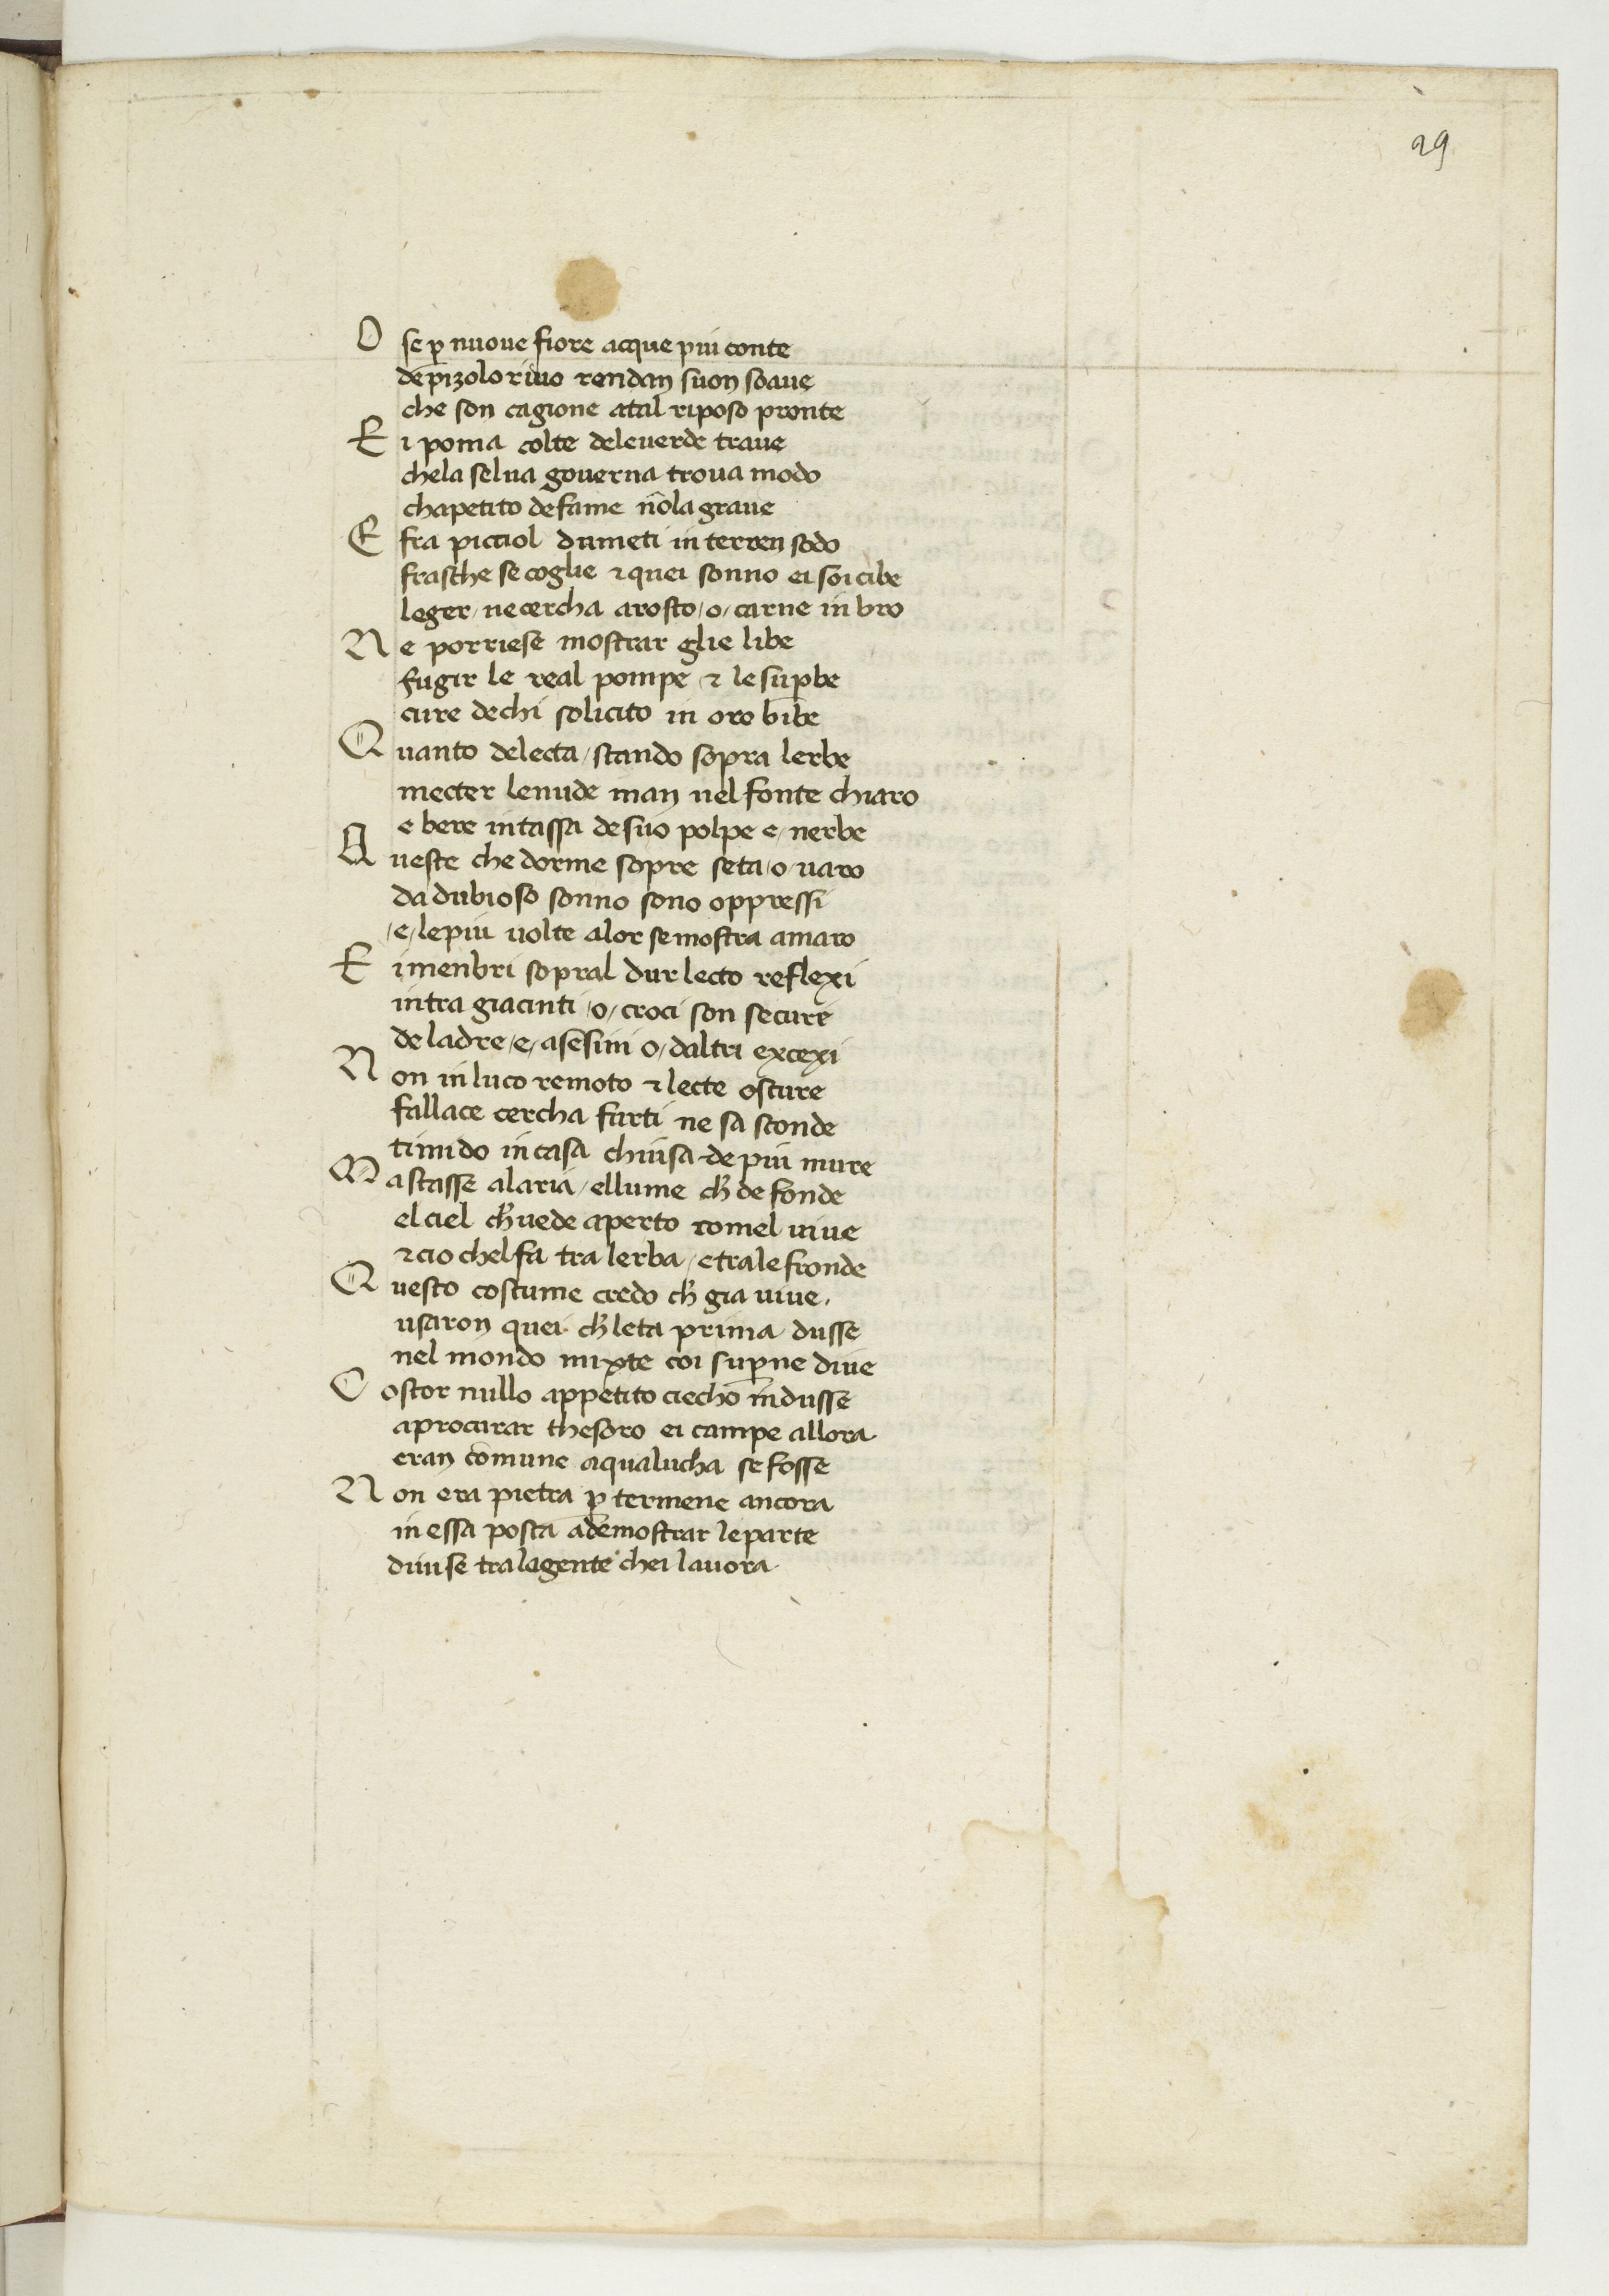 29
O se ꝑ nuoue fiore acque piu conte
de pizolo riuo rendan suon soaue
che son cagione atal riposo pronte
E i poma colte deleuerde traue
chela selua gouerna troua modo
chapetito defame nōla graue
E fra picciol dumeti in terren sodo
frasche se coglie ⁊ quei sonno ei soi cibe
leger / ne cercha arosto / o / carne in bro
N e porriese mostrar glie libe
fugir le real pompe ⁊ le suꝑbe
cure dechi solicito in oro bibe
Q uanto delecta / stando sopra lerbe
mecter lenude man nel fonte chiaro
e bere intassa de suo polpe e / nerbe
Q ueste che dorme sopre seta / o / uaro
da dubioso sonno sono oppressi
/ e / lepiu uolte alor semostra amaro
E i menbri sopral dur lecto reflexi
intra giacinti / o / croci son secure
de ladre / e / asesini o / daltri excexi
N on in luco remoto ⁊ lecte oscure
fallace cercha furti ne sa sconde
timido in casa chiusa de piu mure
M a stasse alaria / ellume ch̄ de fonde
el ciel ch̄ uede aperto comel uiue
⁊ cio chel fa tra lerba / e trale fronde
Q uesto costume credo ch̄ gia uiue /
usaron quei ch̄ leta prima dusse
nel mondo mixte coi suꝑne diue
C ostor nullo appetito ciecho indusse
aprocurar thesoro ei campe allora
eran comune aqualucha se fosse
N on era pietra ꝑ termene ancora
in essa posta ademostrar le parte
diuise tralagente chei lauora